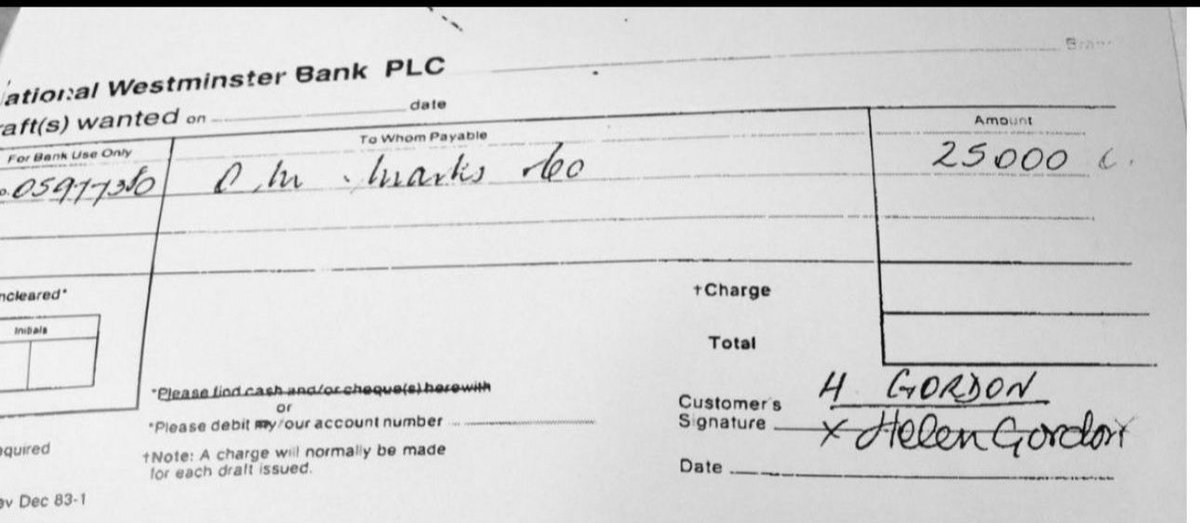 ational Westminster Bank PLC
raft(s) wanted on date
For Bank Use Only To Whom Payable Amount
marks &co 25000
ncleared*
†Charge
Initials
Total
*Please find cash and/or cheque(s) herewith
or
*Please debit my/our account number
Customer's
Signature
H GORDON
x Helen Gordon
equired
†Note: A charge will normally be made
for each draft issued.
Date
ev Dec 83-1